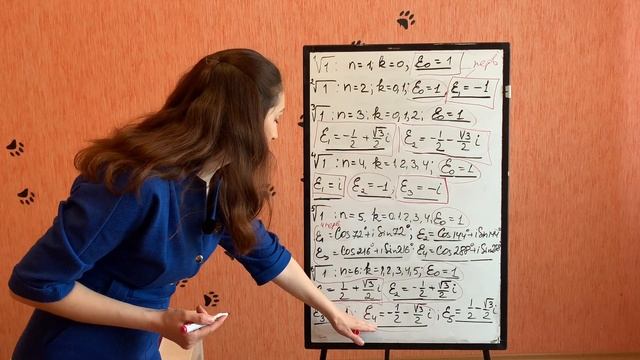 ¹√1 : n=1; k=0, ε₀=1
перв
²√1 : n=2; k=0,1; ε₀=1, ε₁=-1
³√1 : n=3; k=0,1,2, ε₀=1
ε₁=-1/2+√3/2 i ε₂=-1/2-√3/2 i
⁴√1 : n=4, k=1,2,3,4; ε₀=1
ε₁=i ε₂=-1, ε₃=-i
⁵√1 : n=5, k=0,1,2,3,4; ε₀=1
ε₁=Cos72°+iSin72°; ε₂=Cos144°+iSin144°
ε₃=Cos216°+iSin216° ε₄=Cos288°+iSin288°
⁶√1 : n=6; k=1,2,3,4,5, ε₀=1
=1/2+√3/2 i ε₂=-1/2+√3/2 i
ε₄=-1/2-√3/2 i ε₅=1/2-√3/2 i